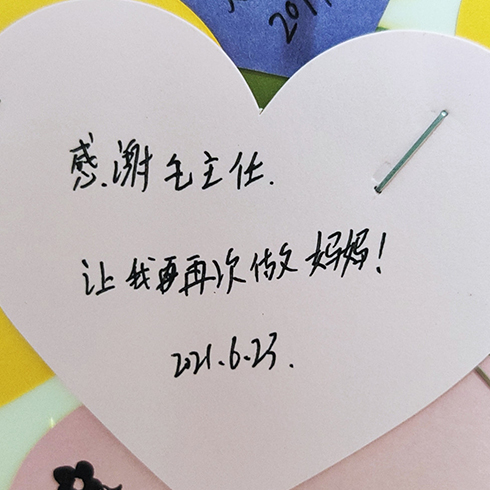 201
感谢毛主任.
让我再次做妈妈!
2021.6.23.